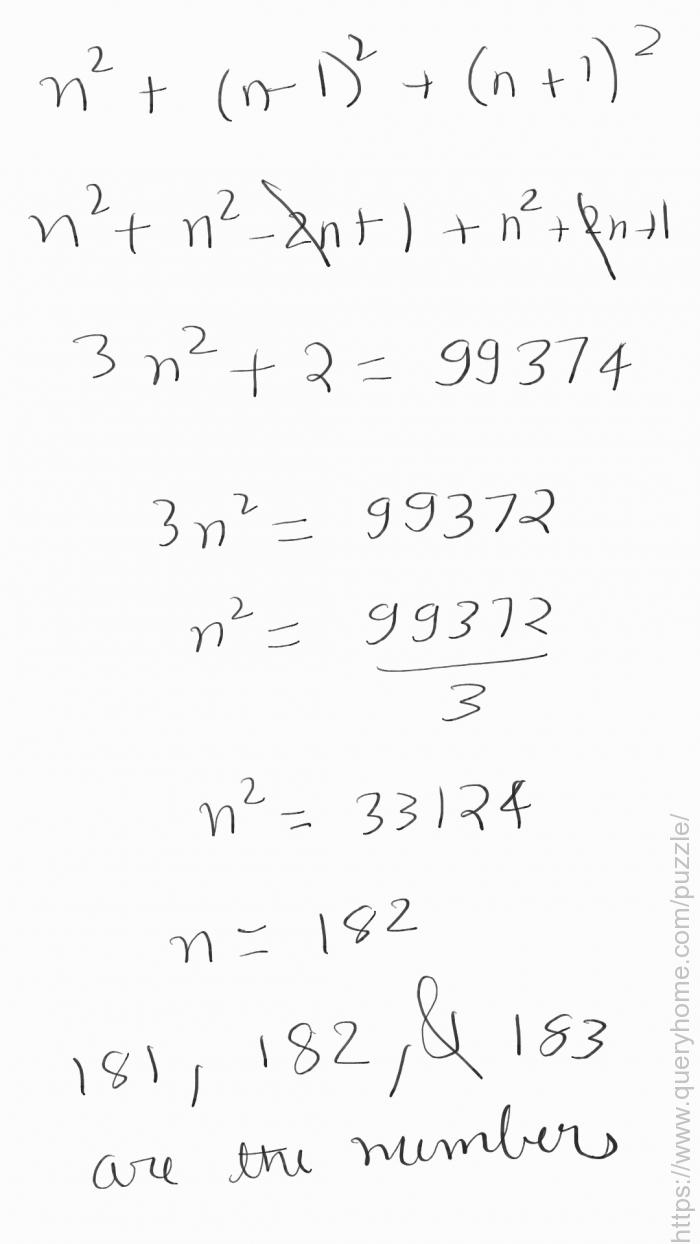 n² + (n-1)² + (n+1)²
n² + n² - 2n + 1 + n² + 2n + 1
3n² + 2 = 99374
3n² = 99372
n² = 99372
3
n² = 33124
n = 182
181, 182, & 183
are the numbers
https://www.queryhome.com/puzzle/